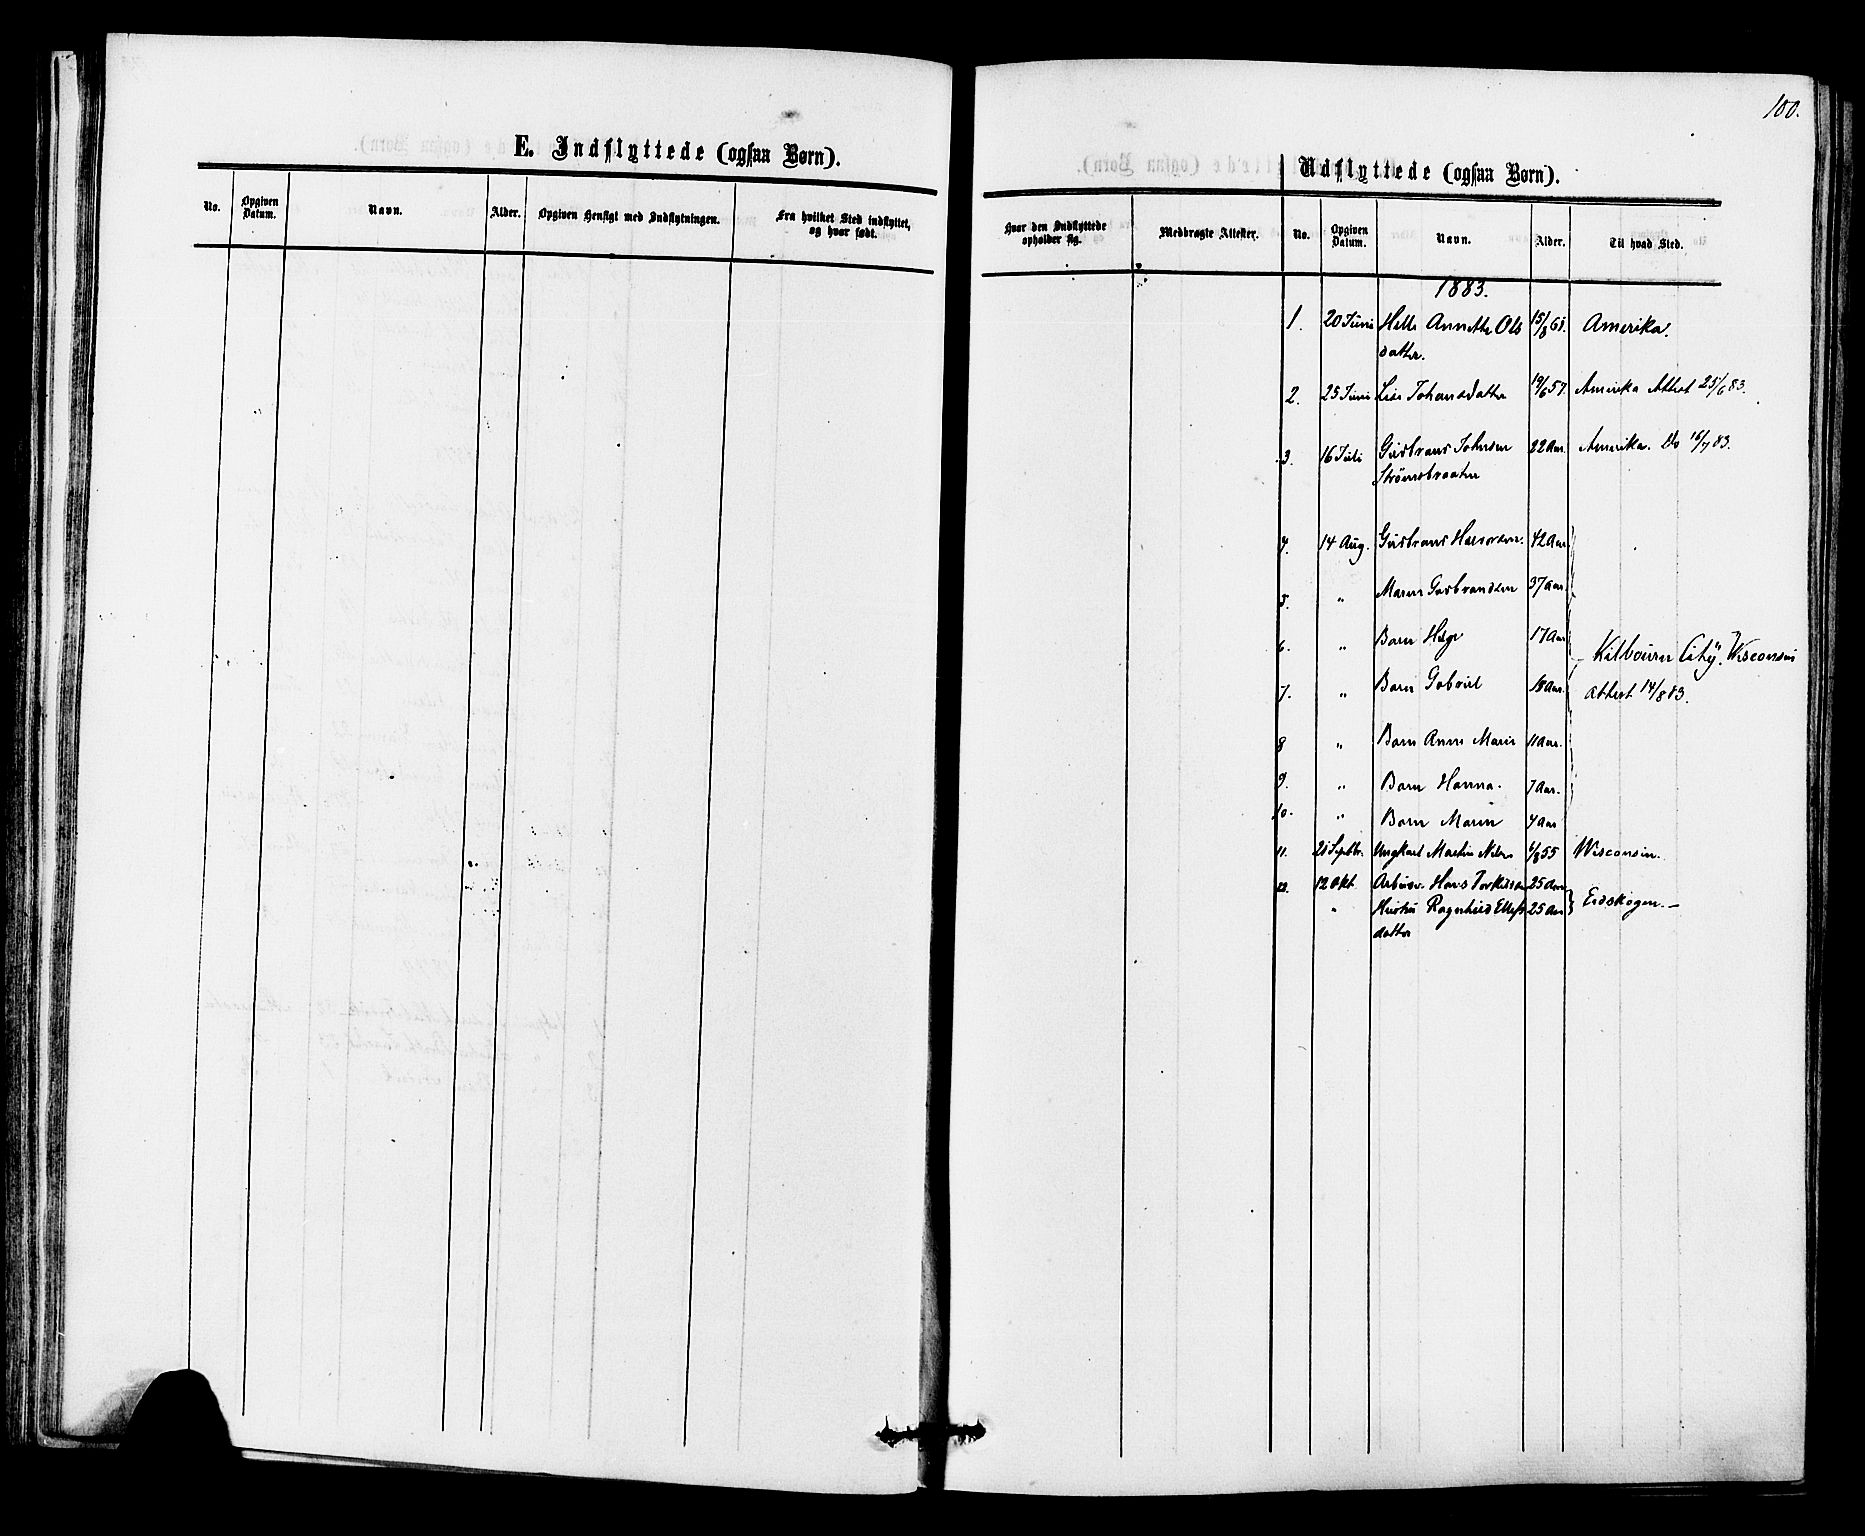 100.
E. Indflyttede (ogsaa Børn).
No.
Opgiven Datum.
Navn.
Alder.
Opgiven Hensigt med Indflytningen.
Fra hvilket Sted indflyttet, og hvor født.
Udflyttede (ogsaa Børn).
Hvor den Indflyttede opholder sig.
Medbragte Attester.
No.
Opgiven Datum.
Navn.
Alder.
Til hvad Sted.
1883.
1. 20 Juni Helle Annette Ols 15/8 61. Amerika.
datter.
2. 25 Juni Lise Johansdatter 19/6 57. Amerika Attest 25/6 83.
3. 16 Juli Gudbrand Johnsen 22 Aar. Amerika. Do 16/7 83.
Strømsbraaten
4. 14 Aug. Gudbrand Halvorsen. 42 Aar.
5. " Maren Gudbrandsen 37 Aar.
6. " Barn Helge 17 Aar
Kilbourn City. Wisconsin
7. " Barn Gabriel 18 Aar. Attest 14/8 83.
8 " Barn Anne Marie 11 Aar.
9. " Barn Hanna. 7 Aar.
10. " Barn Maren 4 Aar
11. 21 Septbr. Ungkarl Martin Nils 1/8 55 Wisconsin.
12. 12 Okt. Hans Torkilsen 25 Aar
" Hustru Ragnhild Ellefs 25 Aar Eidskogen.–
datter